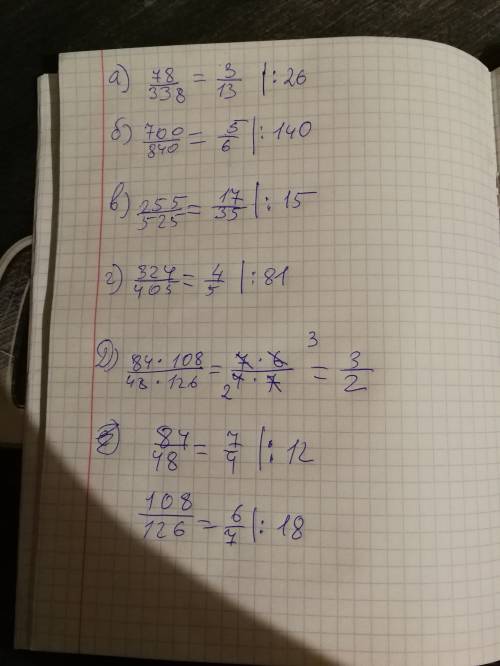 а) 78/338 = 3/13 |: 26
б) 700/840 = 5/6 |: 140
в) 255/525 = 17/35 |: 15
г) 324/405 = 4/5 |: 81
Д) 84 · 108/48 · 126 = 7 · 6/4 · 7 = 3/2
3
2
84/48 = 7/4 |: 12
108/126 = 6/7 |: 18